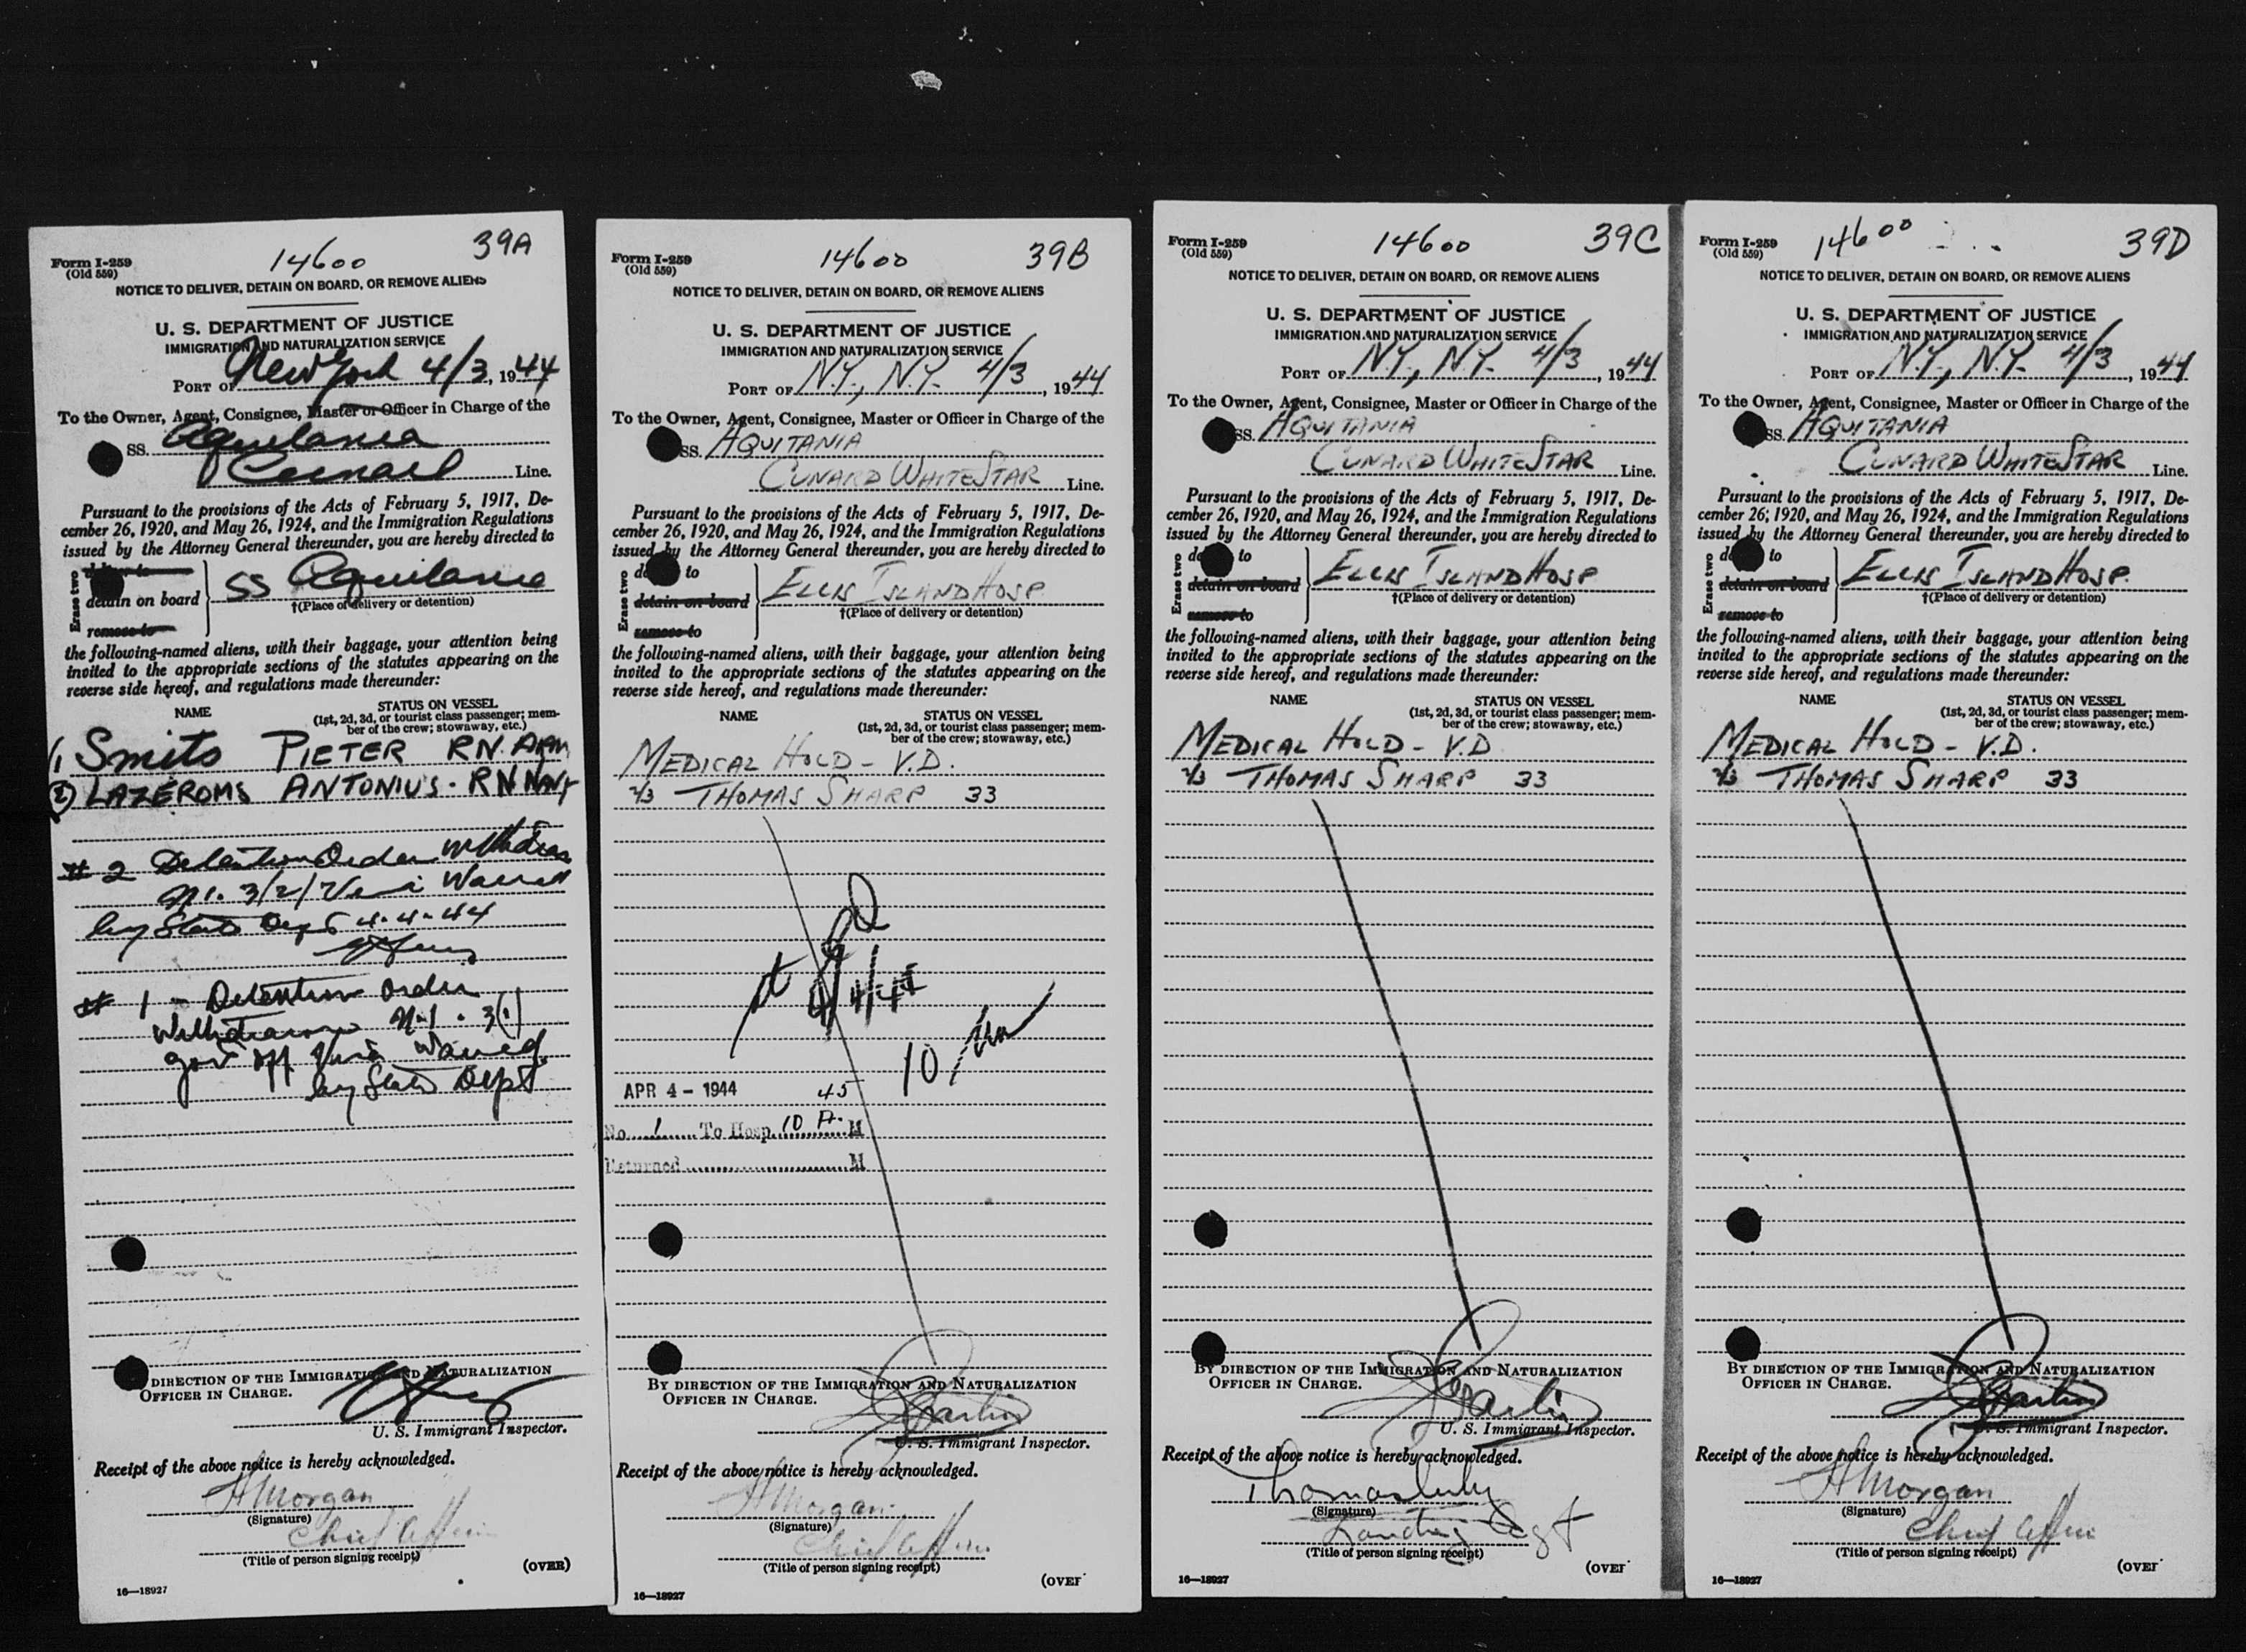 14600 39A
Form I-259
(Old 559)
NOTICE TO DELIVER, DETAIN ON BOARD, OR REMOVE ALIENS
U. S. DEPARTMENT OF JUSTICE
IMMIGRATION AND NATURALIZATION SERVICE
PORT OF New York 4/3, 1944
To the Owner, Agent, Consignee, Master or Officer in Charge of the
SS. Aquitania
Cunard Line.
Pursuant to the provisions of the Acts of February 5, 1917, De-
cember 26, 1920, and May 26, 1924, and the Immigration Regulations
issued by the Attorney General thereunder, you are hereby directed to
Erase two
deliver to
detain on board
remove to
SS Aquitania
†(Place of delivery or detention)
the following-named aliens, with their baggage, your attention being
invited to the appropriate sections of the statutes appearing on the
reverse side hereof, and regulations made thereunder:
NAME STATUS ON VESSEL
(1st, 2d, 3d, or tourist class passenger; mem-
ber of the crew; stowaway, etc.)
1 Smits PIETER R.N. ARM
2) LAZEROMS ANTONIUS. R N NAVY
# 2 Detention Order Withdrawn
by State Dept 4-4-44
# 1 - Detention order
Withdrawn
gov off Visa Waived
by State Dept
DIRECTION OF THE IMMIGRATION AND NATURALIZATION
OFFICER IN CHARGE.
U. S. Immigrant Inspector.
Receipt of the above notice is hereby acknowledged.
A Morgan
(Signature)
Chief Officer
(Title of person signing receipt)
(OVER)
16—18927
14600 39B
Form I-259
(Old 559)
NOTICE TO DELIVER, DETAIN ON BOARD, OR REMOVE ALIENS
U. S. DEPARTMENT OF JUSTICE
IMMIGRATION AND NATURALIZATION SERVICE
PORT OF N.Y., N.Y. 4/3, 1944
To the Owner, Agent, Consignee, Master or Officer in Charge of the
SS. AQUITANIA
CUNARD WHITE STAR Line.
Pursuant to the provisions of the Acts of February 5, 1917, De-
cember 26, 1920, and May 26, 1924, and the Immigration Regulations
issued by the Attorney General thereunder, you are hereby directed to
Erase two
to
detain on board
remove to
ELLIS ISLAND HOSP.
†(Place of delivery or detention)
the following-named aliens, with their baggage, your attention being
invited to the appropriate sections of the statutes appearing on the
reverse side hereof, and regulations made thereunder:
NAME STATUS ON VESSEL
(1st, 2d, 3d, or tourist class passenger; mem-
ber of the crew; stowaway, etc.)
MEDICAL HOLD - V.D.
2/3 THOMAS SHARP 33
4/4/44
10
APR 4 - 1944 45
No. 1 To Hosp. 10 A. M
Returned M
BY DIRECTION OF THE IMMIGRATION AND NATURALIZATION
OFFICER IN CHARGE.
U. S. Immigrant Inspector.
Receipt of the above notice is hereby acknowledged.
A Morgan
(Signature)
Chief Officer
(Title of person signing receipt)
(OVER
16—18927
14600 39C
Form I-259
(Old 559)
NOTICE TO DELIVER, DETAIN ON BOARD, OR REMOVE ALIENS
U. S. DEPARTMENT OF JUSTICE
IMMIGRATION AND NATURALIZATION SERVICE
PORT OF N.Y., N.Y. 4/3, 1944
To the Owner, Agent, Consignee, Master or Officer in Charge of the
SS. AQUITANIA
CUNARD WHITE STAR Line.
Pursuant to the provisions of the Acts of February 5, 1917, De-
cember 26, 1920, and May 26, 1924, and the Immigration Regulations
issued by the Attorney General thereunder, you are hereby directed to
Erase two
to
detain on board
remove to
ELLIS ISLAND HOSP
†(Place of delivery or detention)
the following-named aliens, with their baggage, your attention being
invited to the appropriate sections of the statutes appearing on the
reverse side hereof, and regulations made thereunder:
NAME STATUS ON VESSEL
(1st, 2d, 3d, or tourist class passenger; mem-
ber of the crew; stowaway, etc.)
MEDICAL HOLD - V.D
2/3 THOMAS SHARP 33
BY DIRECTION OF THE IMMIGRATION AND NATURALIZATION
OFFICER IN CHARGE.
U. S. Immigrant Inspector.
Receipt of the above notice is hereby acknowledged.
Thomas
(Signature)
Landing Agt
(Title of person signing receipt)
(OVER
16—18927
14600 39D
Form I-259
(Old 559)
NOTICE TO DELIVER, DETAIN ON BOARD, OR REMOVE ALIENS
U. S. DEPARTMENT OF JUSTICE
IMMIGRATION AND NATURALIZATION SERVICE
PORT OF N.Y., N.Y. 4/3, 1944
To the Owner, Agent, Consignee, Master or Officer in Charge of the
SS. AQUITANIA
CUNARD WHITE STAR Line.
Pursuant to the provisions of the Acts of February 5, 1917, De-
cember 26, 1920, and May 26, 1924, and the Immigration Regulations
issued by the Attorney General thereunder, you are hereby directed to
Erase two
to
detain on board
remove to
ELLIS ISLAND HOSP.
†(Place of delivery or detention)
the following-named aliens, with their baggage, your attention being
invited to the appropriate sections of the statutes appearing on the
reverse side hereof, and regulations made thereunder:
NAME STATUS ON VESSEL
(1st, 2d, 3d, or tourist class passenger; mem-
ber of the crew; stowaway, etc.)
MEDICAL HOLD - V.D.
2/3 THOMAS SHARP 33
BY DIRECTION OF THE IMMIGRATION AND NATURALIZATION
OFFICER IN CHARGE.
U. S. Immigrant Inspector.
Receipt of the above notice is hereby acknowledged.
A Morgan
(Signature)
Chief Officer
(Title of person signing receipt)
(OVER
16—18927